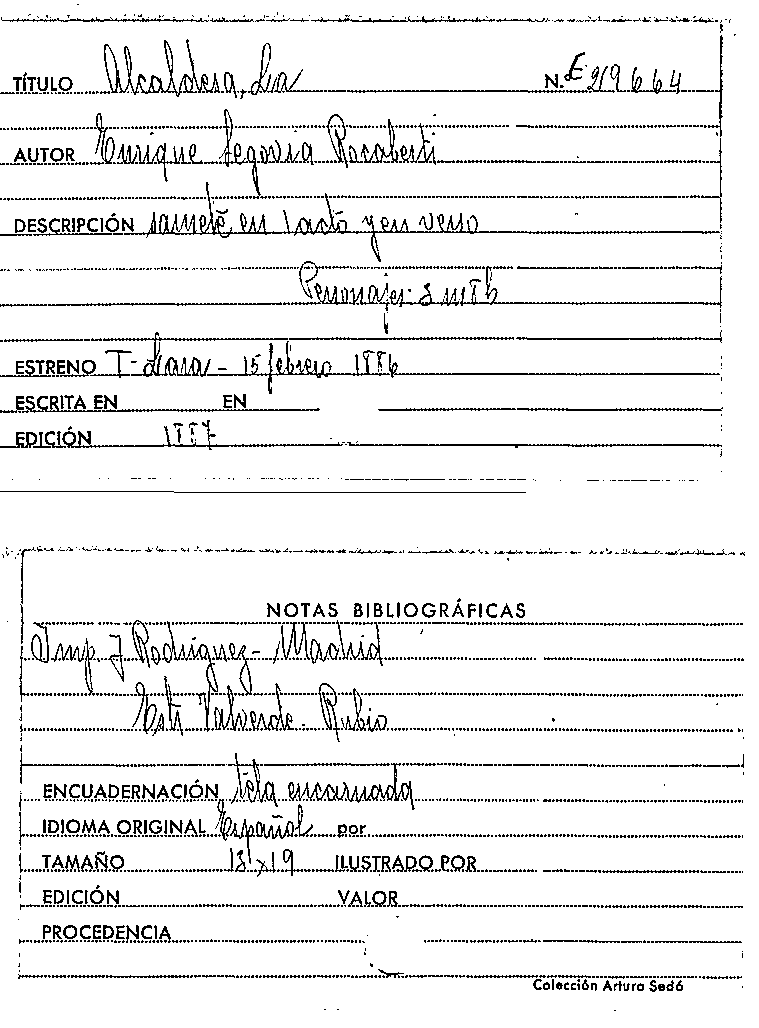 TÍTULO Alcaldesa, La N. E 219664
AUTOR Enrique Segovia Rocaberti
DESCRIPCIÓN sainete en 1 acto y en verso
Personajes: 8 m 8 h
ESTRENO T- Lara - 15 febrero 1886
ESCRITA EN EN
EDICIÓN 1887
NOTAS BIBLIOGRÁFICAS
Imp J Rodriguez - Madrid
Valverde - Rubio
ENCUADERNACIÓN tela encarnada
IDIOMA ORIGINAL Español por
TAMAÑO 13'x19 ILUSTRADO POR
EDICIÓN VALOR
PROCEDENCIA
Colección Arturo Sedó